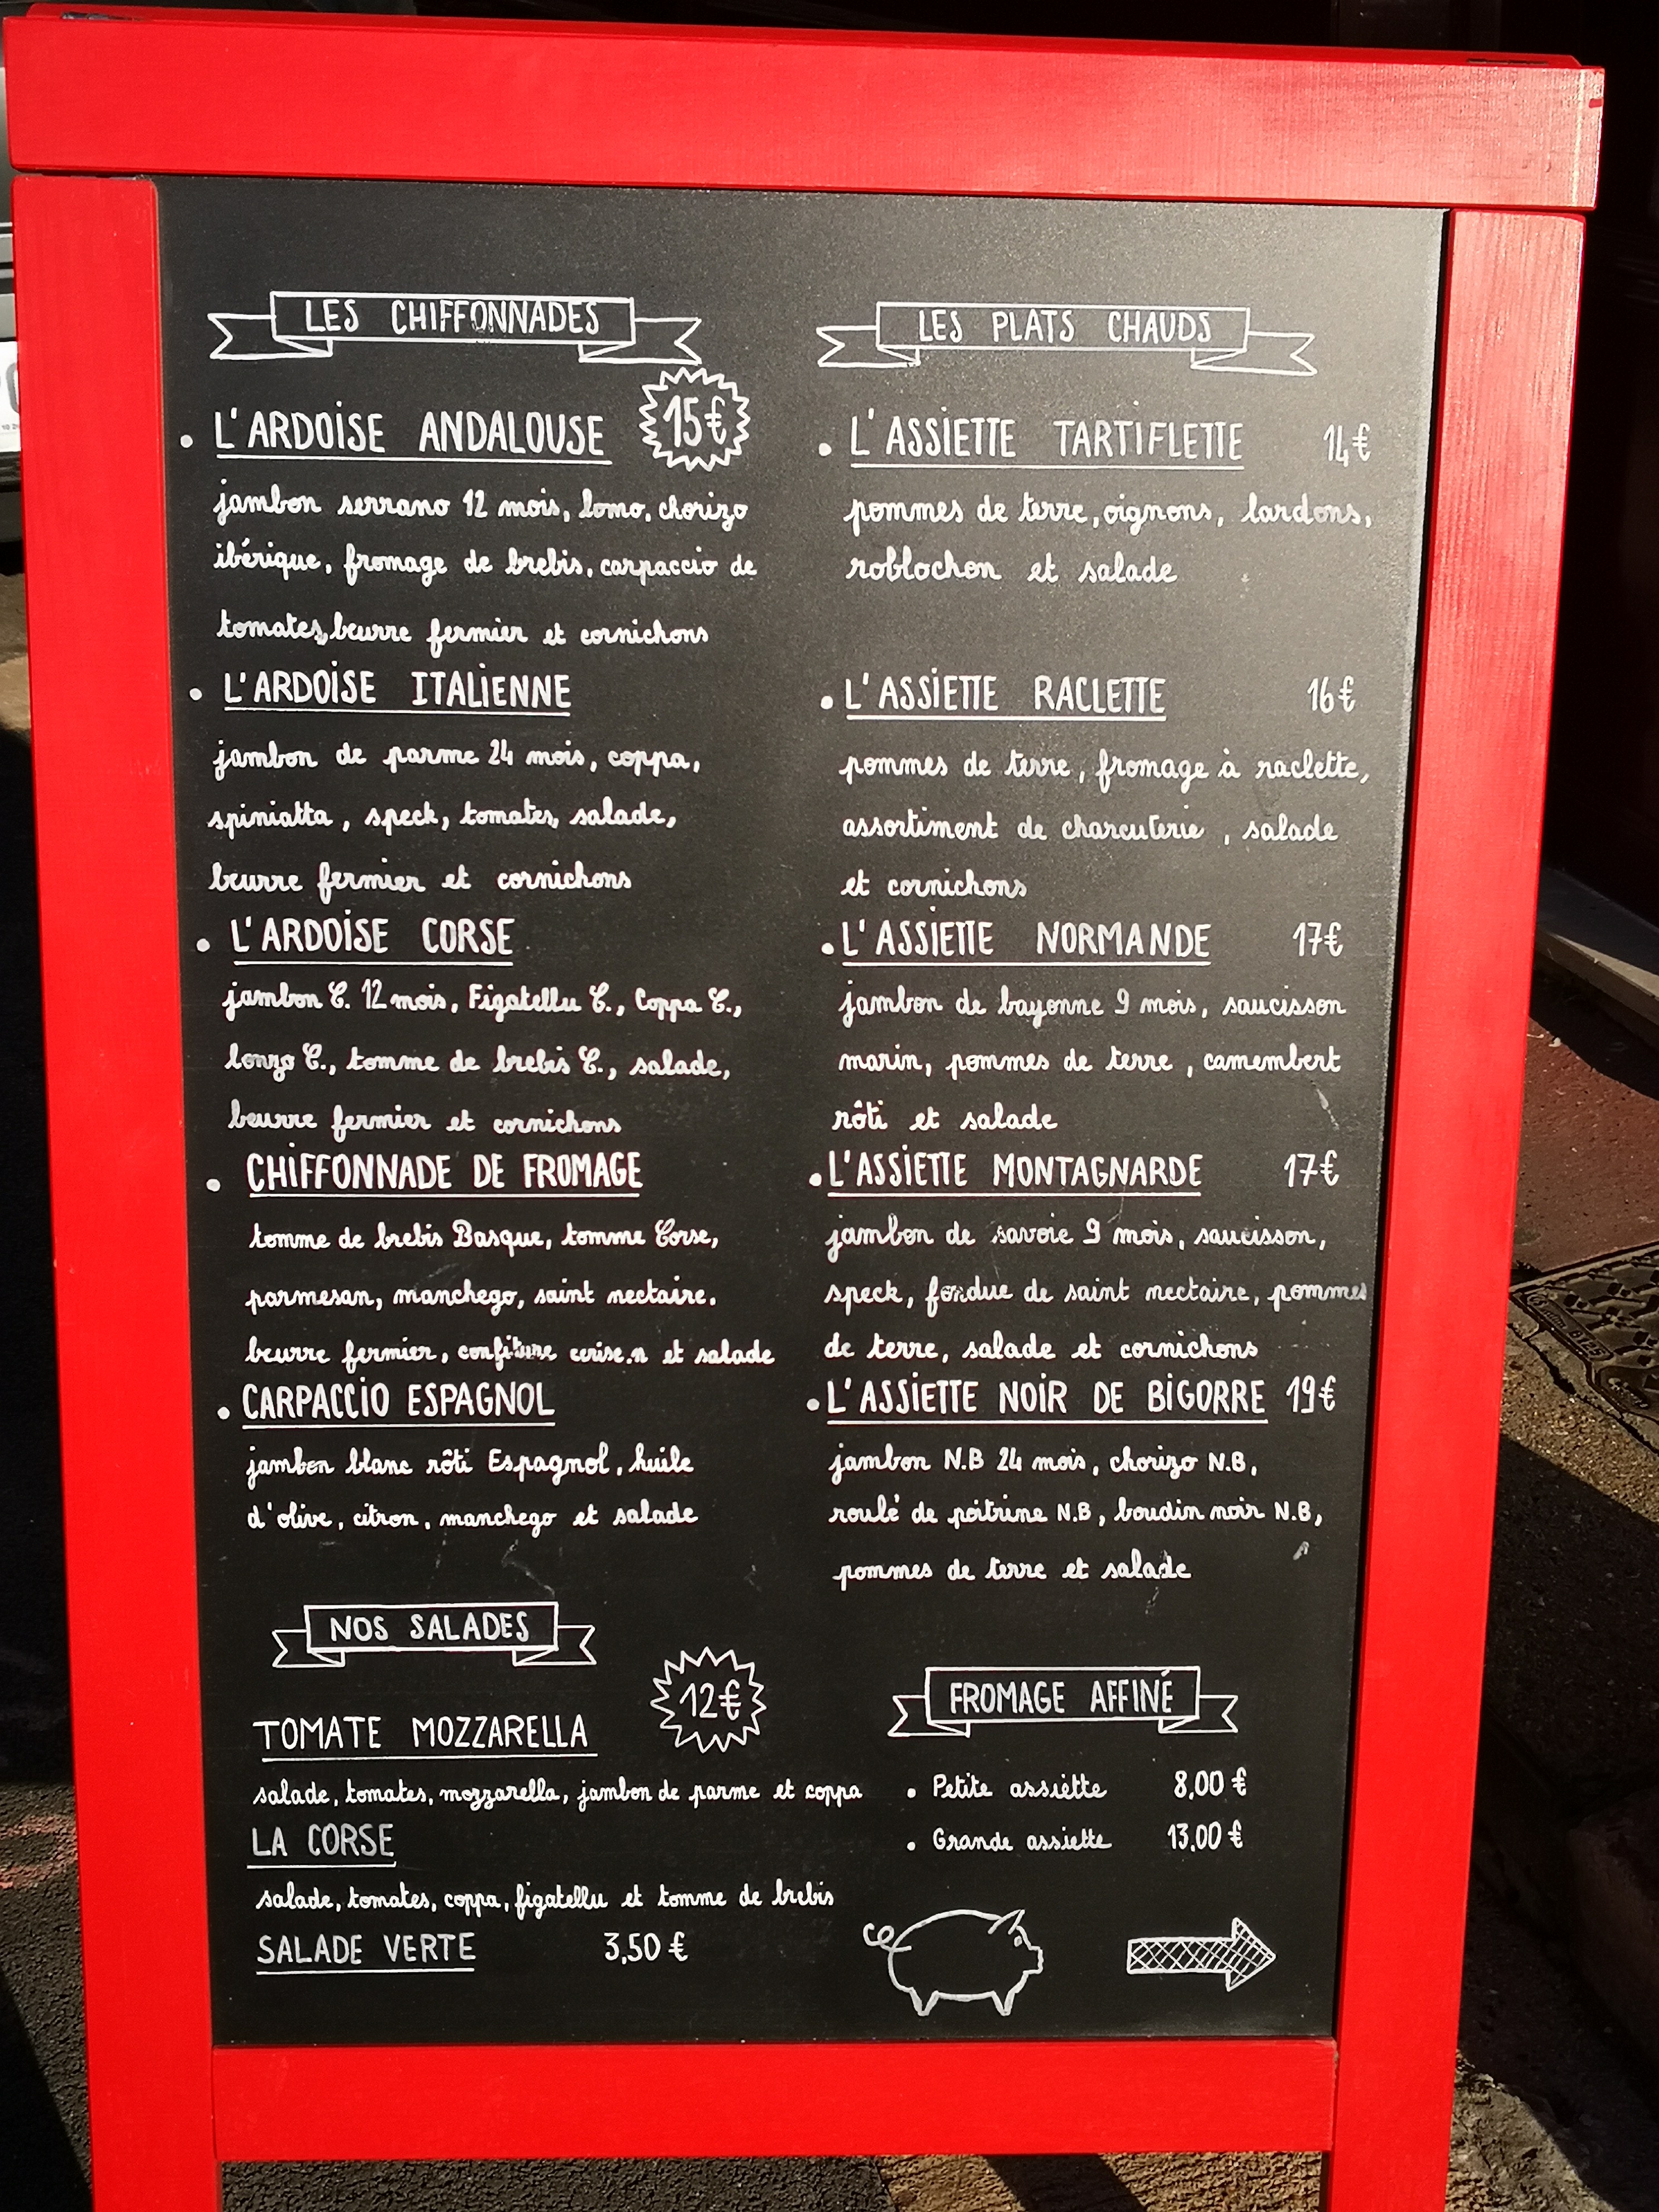 LES CHIFFONNADES
15€
L'ARDOISE ANDALOUSE
jambon serrano 12 mois, lomo, chorizo
ibérique, fromage de brebis, carpaccio de
tomates, beurre fermier et cornichons
L'ARDOISE ITALIENNE
jambon de parme 24 mois, coppa,
spiniatta, speck, tomates, salade,
beurre fermier et cornichons
L'ARDOISE CORSE
jambon C. 12 mois, Figatellu C., Coppa C.,
lonzo C., tomme de brebis C., salade,
beurre fermier et cornichons
CHIFFONNADE DE FROMAGE
tomme de brebis Basque, tomme Corse,
parmesan, manchego, saint nectaire,
beurre fermier, confiture cerise.n et salade
CARPACCIO ESPAGNOL
jambon blanc rôti Espagnol, huile
d'olive, citron, manchego et salade
NOS SALADES
12€
TOMATE MOZZARELLA
salade, tomates, mozzarella, jambon de parme et coppa
LA CORSE
salade, tomates, coppa, figatellu et tomme de brebis
SALADE VERTE 3,50 €
LES PLATS CHAUDS
L'ASSIETTE TARTIFLETTE 14€
pommes de terre, oignons, lardons,
roblochon et salade
L'ASSIETTE RACLETTE 16€
pommes de terre, fromage à raclette,
assortiment de charcuterie, salade
et cornichons
L'ASSIETTE NORMANDE 17€
jambon de bayonne 9 mois, saucisson
marin, pommes de terre, camembert
rôti et salade
L'ASSIETTE MONTAGNARDE 17€
jambon de savoie 9 mois, saucisson,
speck, fondue de saint nectaire, pommes
de terre, salade et cornichons
L'ASSIETTE NOIR DE BIGORRE 19€
jambon N.B 24 mois, chorizo N.B,
roulé de poitrine N.B, boudin noir N.B,
pommes de terre et salade
FROMAGE AFFINÉ
Petite assiette 8,00 €
Grande assiette 13,00 €